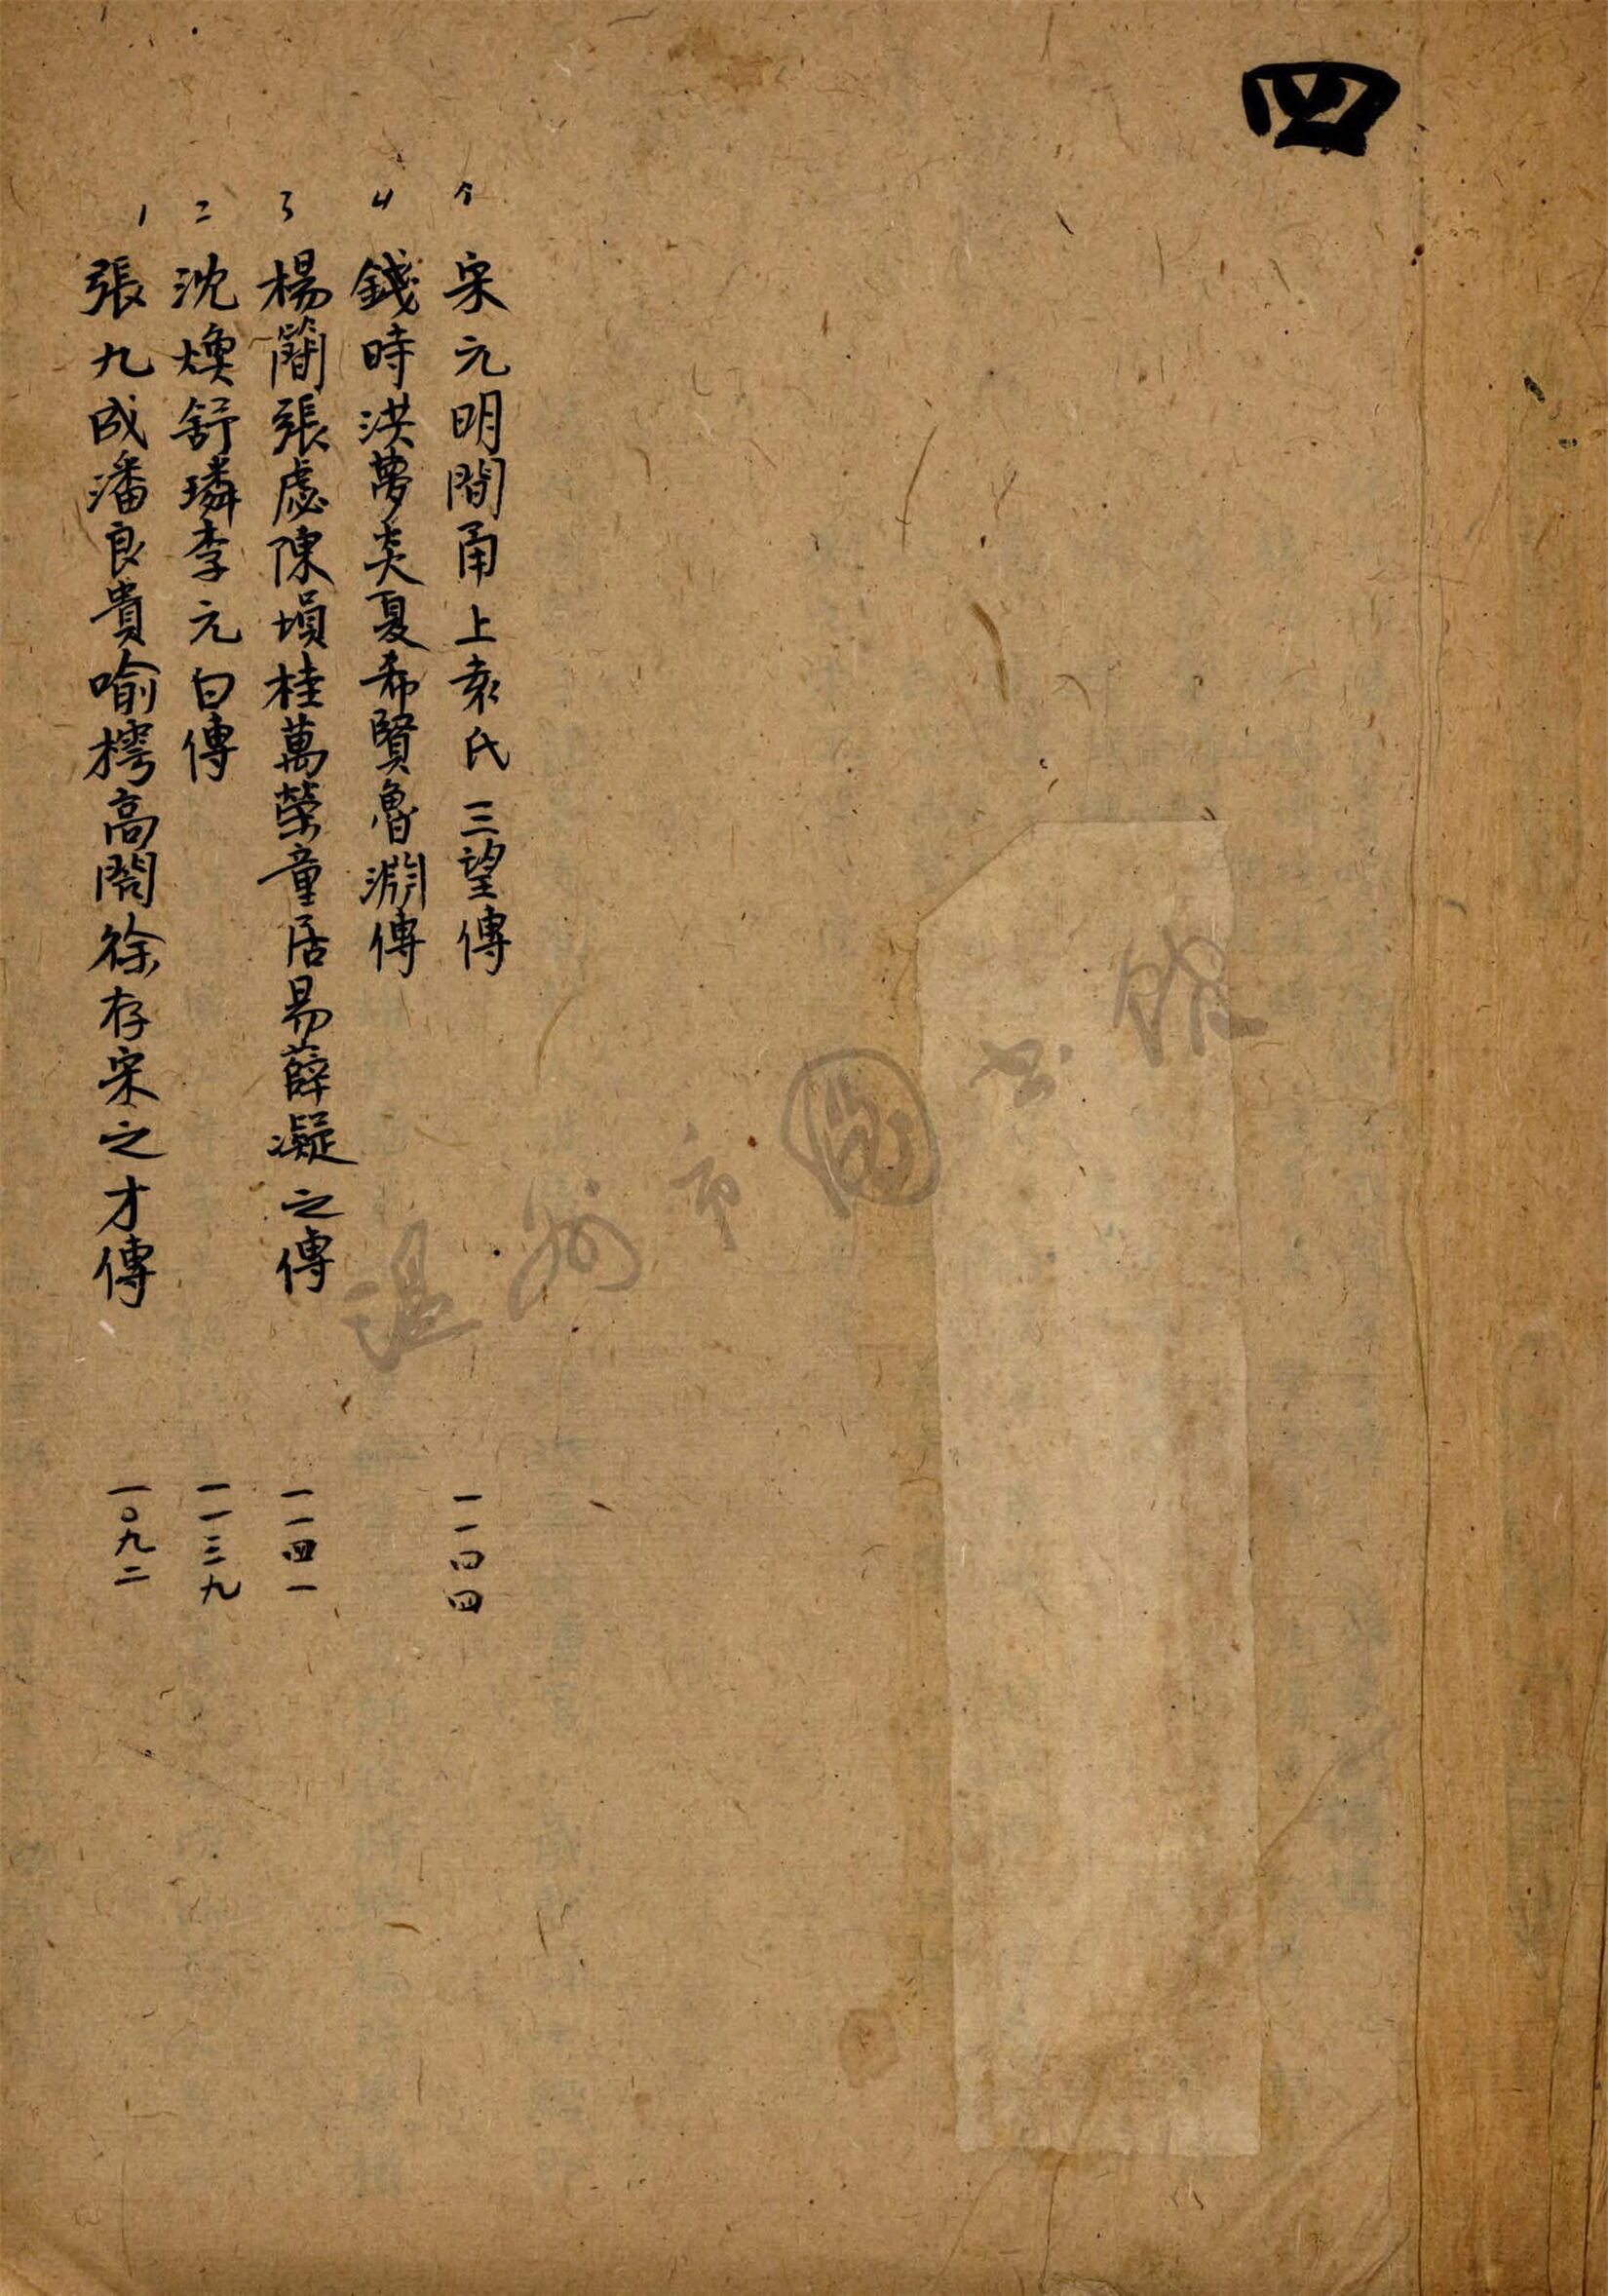 四
宋元明間甬上袁氏三望傳 一一〇四
4 錢時洪夢炎夏希賢魯淵傳
3 楊簡張虙陳塤桂萬榮童居易薛凝之傳 一一四一
二 沈煥舒璘李元白傳 一一三九
1 張九成潘良貴喻樗高閌徐存宋之才傳 一〇九二
温州市圖书館